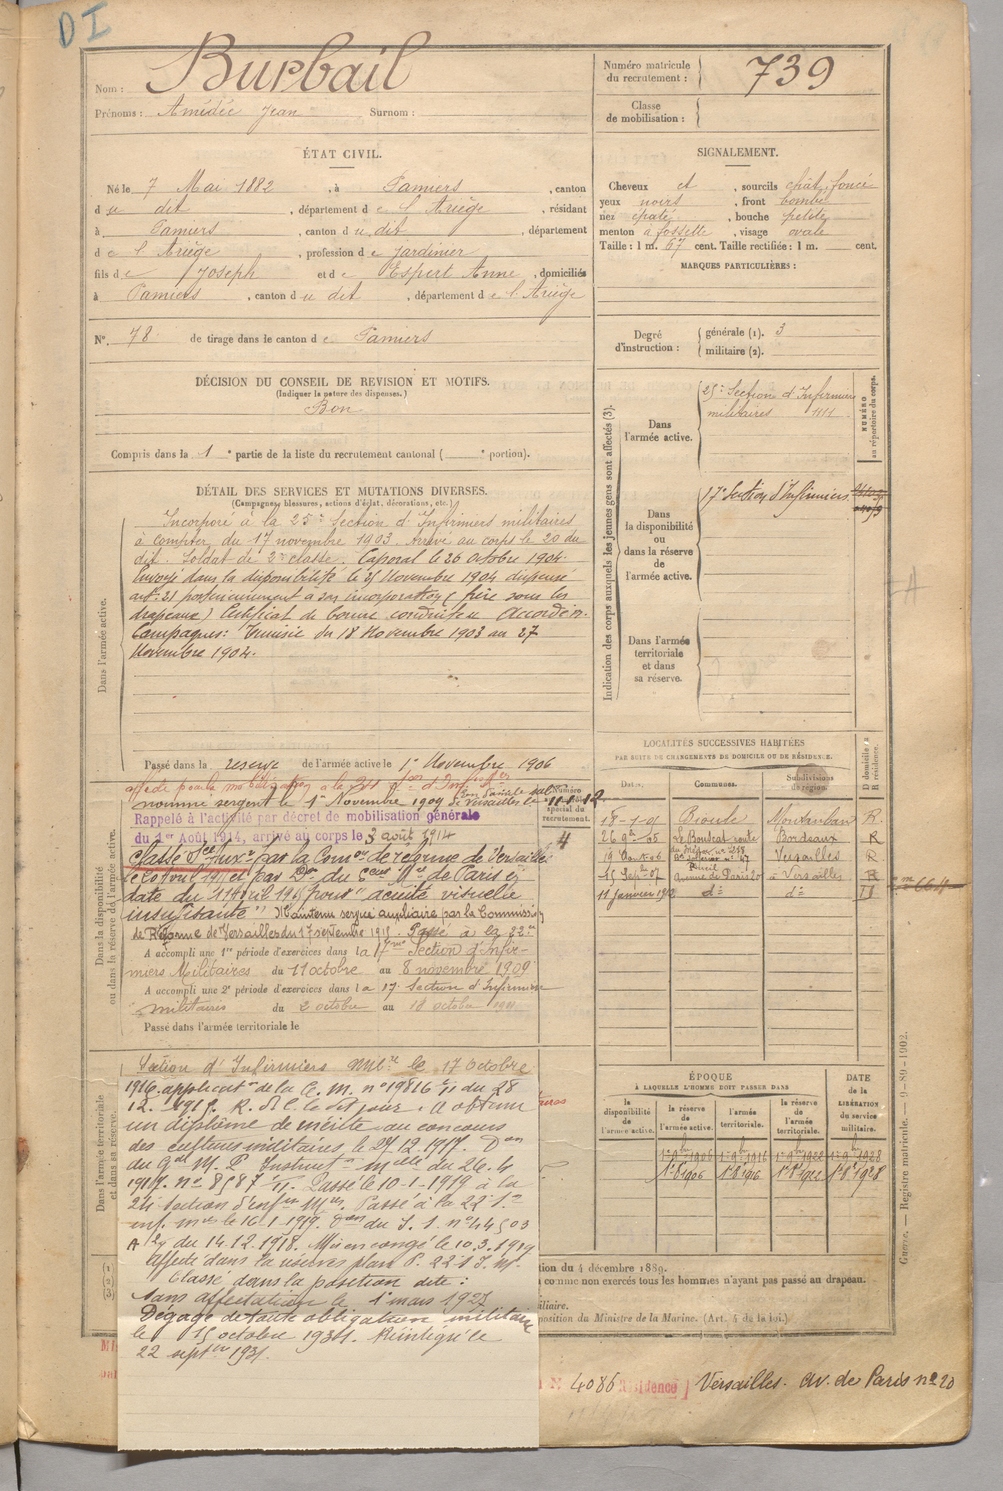 D I
Nom : Burbail
Prénoms : Amédée Jean Surnom :
Numéro matricule du recrutement : 739
Classe de mobilisation :
ÉTAT CIVIL.
Né le 7 Mai 1882, à Pamiers, canton
du dit, département de l'Ariège, résidant
à Pamiers, canton du dit, département
de l'Ariège, profession de jardinier
fils de Joseph et de Espert Anne, domiciliés
à Pamiers, canton du dit, département de l'Ariège
N°. 78 de tirage dans le canton de Pamiers
SIGNALEMENT.
Cheveux ct, sourcils chât. foncé
yeux noirs, front bombé
nez épaté, bouche petite
menton à fossette, visage ovale
Taille : 1 m. 67 cent. Taille rectifiée : 1 m. cent.
MARQUES PARTICULIÈRES :
Degré d'instruction : générale (1). 3
militaire (2).
DÉCISION DU CONSEIL DE REVISION ET MOTIFS.
(Indiquer la nature des dispenses.)
Bon
Compris dans la 1e partie de la liste du recrutement cantonal ( e portion).
DÉTAIL DES SERVICES ET MUTATIONS DIVERSES.
(Campagnes, blessures, actions d'éclat, décorations, etc.)
Dans l'armée active.
Incorporé à la 25e Section d'Infirmiers militaires
à compter du 17 novembre 1903. Arrivé au corps le 20 du
dit. Soldat de 2e classe. Caporal le 26 octobre 1904.
Envoyé dans la disponibilité le 25 Novembre 1904 dispensé
art. 21 postérieurement à son incorporation (frère sous les
drapeaux) Certificat de bonne conduite Accordé.
Campagnes : Tunisie du 18 Novembre 1903 au 27
Novembre 1904.
Passé dans la réserve de l'armée active le 1er Novembre 1906
Dans la disponibilité ou dans la réserve de l'armée active.
nommé sergent le 1er Novembre 1909
Rappelé à l'activité par décret de mobilisation générale
du 1er Août 1914, arrivé au corps le 3 août 1914
Classé Sce Auxre par la Comon de réforme de Versailles
date du 11 Avril 1915 pour "acuité visuelle
insuffisante" Maintenu service auxiliaire par la Commission
de Réforme de Versailles du 17 septembre 1915. Passé à la 22e
A accompli une 1re période d'exercices dans la 17me Section d'Infir-
miers Militaires du 11 octobre au 8 novembre 1909
A accompli une 2e période d'exercices dans la 17e Section d'Infirmiers
militaires du 2 octobre au 18 octobre
Passé dans l'armée territoriale le
Dans l'armée territoriale et dans sa réserve.
Section d'Infirmiers Milre le 17 octobre
1916. applicaton de la C. M. n° 19816 du 28
12. 1915. R. D. C. le dit jour. A obtenu
un diplôme de mérite au concours
des cultures militaires le 27.12.1917. Don
1919. n° 8587 Passé le 10-1-1919 à la
24e section d'infirs Mres. Passé à la 22e Son
inf. mres le 16.1.1919. don du S. S. n° 44503
du 14.12.1918. Mis en congé le 10.3.1919
affecté dans la réserve
Classé dans la position dite :
sans affectation le 1er mars 1927
Dégagé de toute obligation militaire
le 15 octobre 1934. Réintégré le
22 septbre
Indication des corps auxquels les jeunes gens sont affectés (3).
NUMÉRO au répertoire du corps.
Dans l'armée active.
25e Section d'Infirmiers
militaires
Dans la disponibilité ou dans la réserve de l'armée active.
17e Section d'Infirmiers
Dans l'armée territoriale et dans sa réserve.
LOCALITÉS SUCCESSIVES HABITÉES
PAR SUITE DE CHANGEMENTS DE DOMICILE OU DE RÉSIDENCE.
Dates. Communes. Subdivisions de région. D domicile R résidence.
18-1-05 Montauban R.
26 9bre 05 Le Bouscat route Bordeaux R
Versailles R
15 Sept 07 Avenue de Paris 20 Versailles R
11 janvier 1912 do do D
Numéro spécial du recrutement.
4
ÉPOQUE
À LAQUELLE L'HOMME DOIT PASSER DANS
DATE de la LIBÉRATION du service militaire.
la disponibilité de l'armée active. la réserve de l'armée active. l'armée territoriale. la réserve de l'armée territoriale.
1er 9bre 1906 1er 9bre 1916 1er 9bre 1922 1er 9bre 1928
1er 8bre 1906 1er 8bre 1916 1er 8bre 1922 1er 8bre 1928
tion du 4 décembre 1889.
comme non exercés tous les hommes n'ayant pas passé au drapeau.
iliaire.
position du Ministre de la Marine. (Art. 4 de la loi.)
Guerre. — Registre matricule. — 9-89-1902.
4086 Résidence Versailles. av. de Paris n° 20